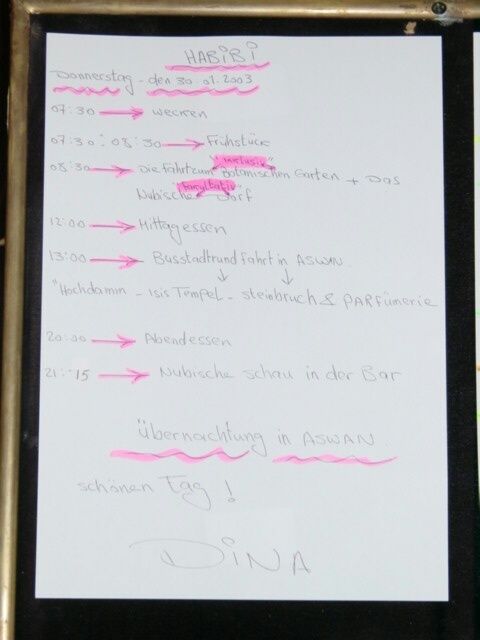 HABiBi
Donnerstag. den 30.01.2003
07:30 → wecken
07:30:08:30 → Frühstück
"inklusiv"
08:30 → Die Fahrt zum Botanischen Garten + Das
"Fakultativ"
Nubische Dorf
12:00 → Mittagessen
13:00 → Busstadtrundfahrt in ASWAN
"Hochdamn - isis Tempel - steinbruch & PARfümerie
20:00 → Abendessen
21:15 → Nubische schau in der Bar
übernachtung in ASWAN
schönen Tag!
DiNA